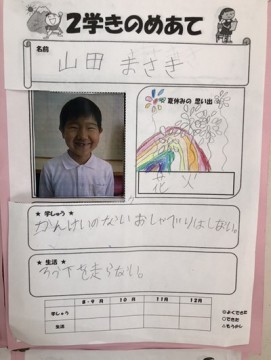 2学きのめあて
名前
山田 まさき
夏休みの 思い出
花火
★ 学しゅう ★
かんけいのないおしゃべりはしない。
★ 生活 ★
ろう下を走らない。
8・9月 10月 11月 12月
学しゅう
生活
◎よくできた
○できた
△もう少し